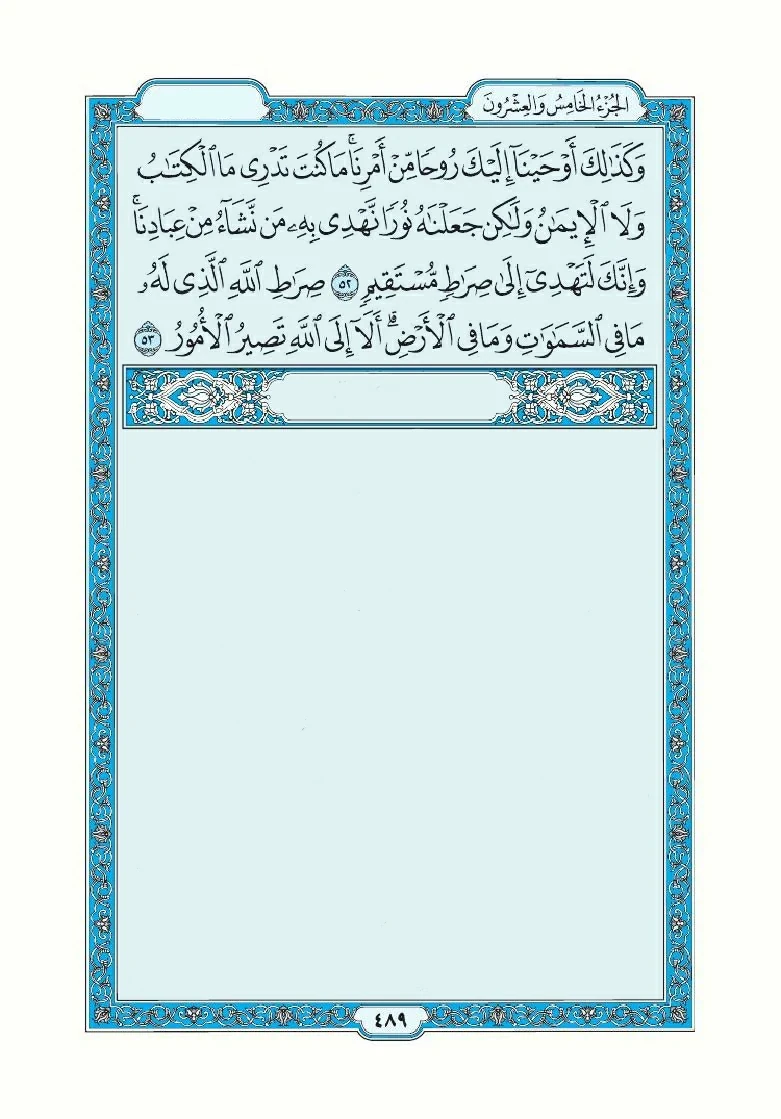 الجُزْءُ الخَامِسُ وَالعِشْرُونَ
وَكَذَٰلِكَ أَوْحَيْنَآ إِلَيْكَ رُوحًا مِّنْ أَمْرِنَا ۚ مَا كُنتَ تَدْرِى مَا ٱلْكِتَٰبُ
وَلَا ٱلْإِيمَٰنُ وَلَٰكِن جَعَلْنَٰهُ نُورًا نَّهْدِى بِهِۦ مَن نَّشَآءُ مِنْ عِبَادِنَا ۚ
وَإِنَّكَ لَتَهْدِىٓ إِلَىٰ صِرَٰطٍ مُّسْتَقِيمٍ ٥٢ صِرَٰطِ ٱللَّهِ ٱلَّذِى لَهُۥ
مَا فِى ٱلسَّمَٰوَٰتِ وَمَا فِى ٱلْأَرْضِ ۗ أَلَآ إِلَى ٱللَّهِ تَصِيرُ ٱلْأُمُورُ ٥٣
٤٨٩